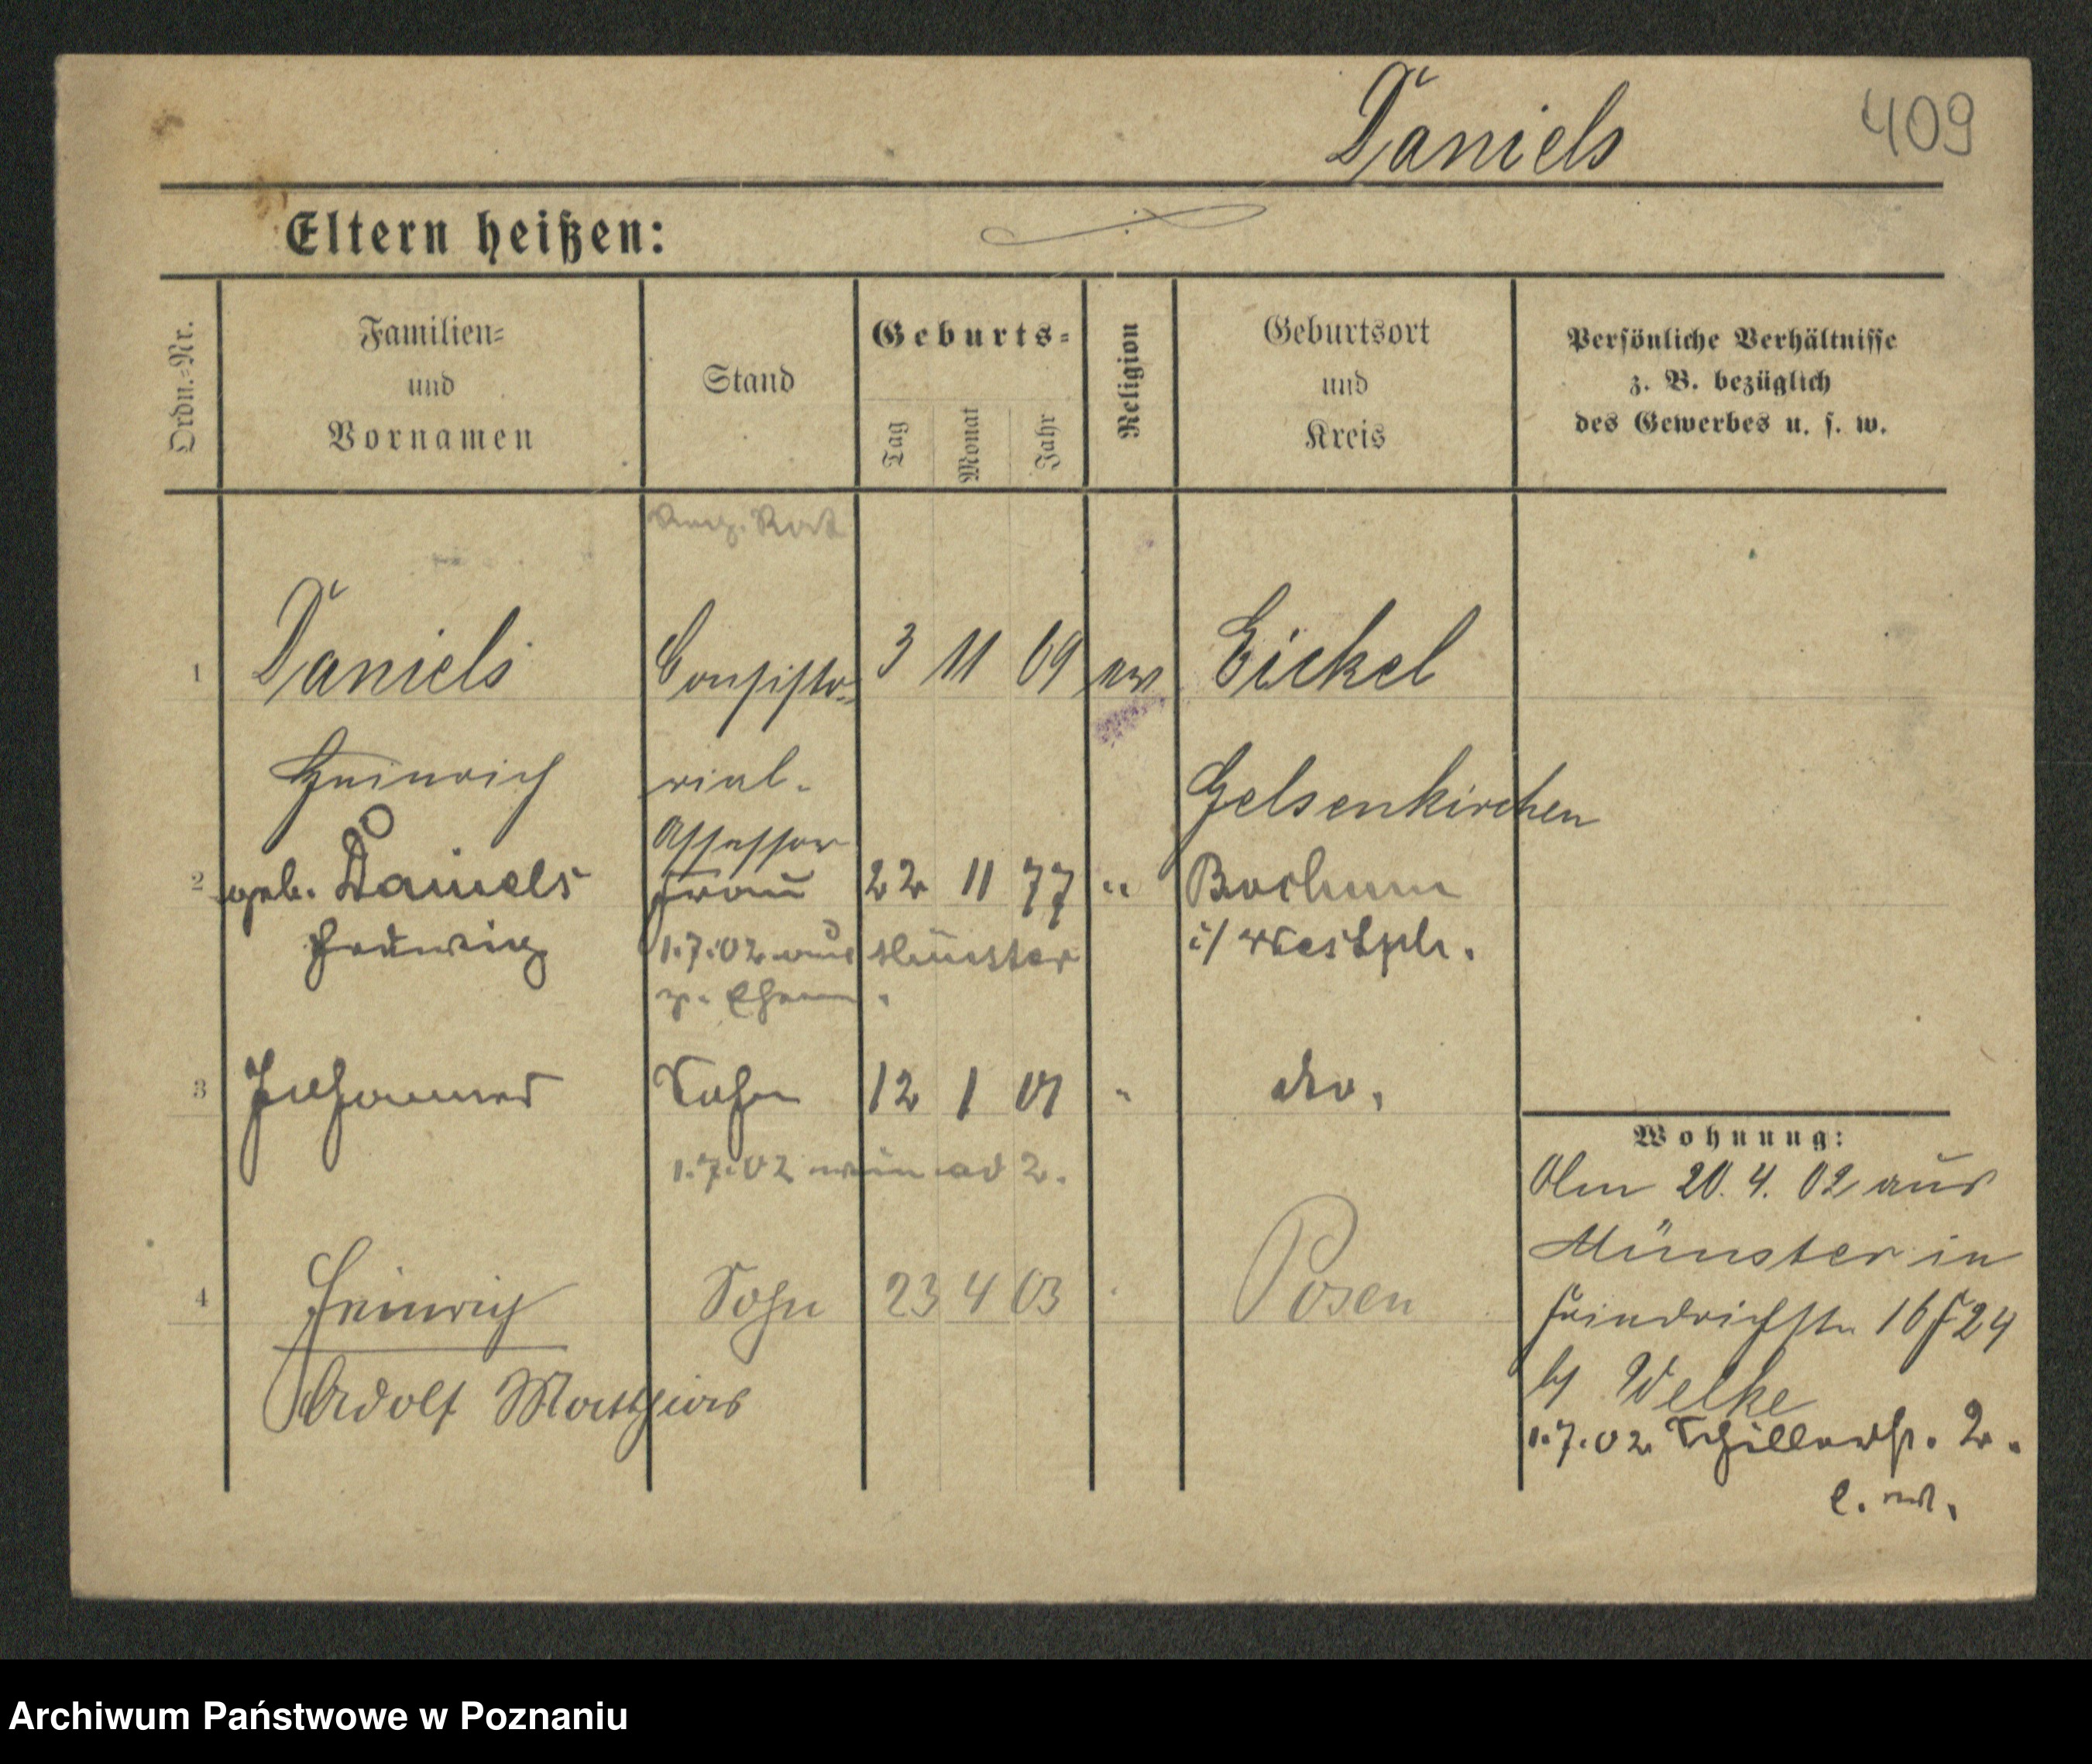 Daniels
409
Eltern heißen:
Ordn.-Nr.
Familien-
und
Vornamen
Stand
Geburts-
Tag
Monat
Jahr
Religion
Geburtsort
und
Kreis
Persönliche Verhältnisse
z. B. bezüglich
des Gewerbes u. s. w.
Rat
1 Daniels Consisto- 3 11 69 ev Eickel
Heinrich rial-
Gelsenkirchen
Assessor
2 geb. Daniels Frau 22 11 77 " Bochum
Hedwig i/Westph.
1.7.02 aus Münster
z. Ehem.
3 Johannes Sohn 12 1 01 " do.
1.7.02 wie ad 2.
4 Heinrich Sohn 23 4 03 Posen
Adolf Matthias
Wohnung:
Am 20.4.02 aus
Münster in
Friedrichstr 16
b/ Welke
1.7.02 Schillerstr. 2.
Archiwum Państwowe w Poznaniu